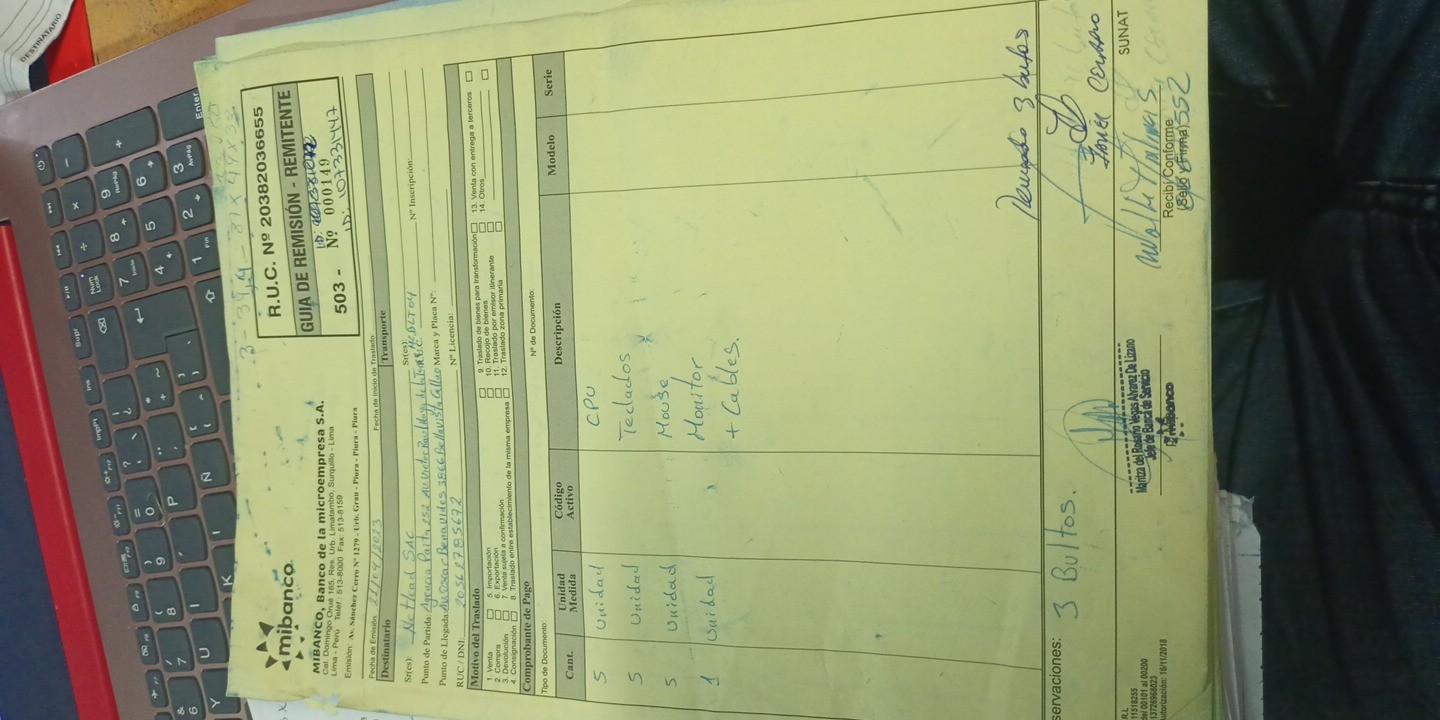 DESTINATARIO
mibanco
MIBANCO, Banco de la microempresa S.A.
Cal. Domingo Orué 165, Res. Urb. Limatambo, Surquillo - Lima
Lima - Perú Telef: 513-8000 Fax: 513-8159
Emisión: Av. Sánchez Cerro N° 1279 - Urb. Grau - Piura - Piura - Piura
R.U.C. Nº 20382036655
GUIA DE REMISIÓN - REMITENTE
503 - Nº 000149
ID: 107331447
Fecha de Emisión: 21/04/2023 Fecha de Inicio de Traslado:
Destinatario
Transporte
Sr(es): Nc Head SAC
Sr(es):
Nº Inscripción:
Punto de Partida: Agencia Paita 252
Punto de Llegada: Av Oscar Benavides 3866 Bellavista Callao
Marca y Placa Nº:
RUC / DNI: 20562785672
Nº Licencia:
Motivo del Traslado
1. Venta
2. Compra
3. Devolución
4. Consignación
5. Importación
6. Exportación
7. Venta sujeta a confirmación
8. Traslado entre establecimiento de la misma empresa
9. Traslado de bienes para transformación
10. Recojo de bienes
11. Traslado por emisor itinerante
12. Traslado zona primaria
13. Venta con entrega a terceros
14. Otros
Comprobante de Pago
Tipo de Documento:
Nº de Documento:
Cant. Unidad Medida Código Activo Descripción Modelo Serie
5 Unidad CPU
5 Unidad Teclados
5 Unidad Mouse
1 Unidad Monitor
+ Cables.
servaciones: 3 Bultos.
3 bultos
Maritza del Rosario Vegas Alvarez De Lizano
Jefe de Banca de Servicio
mibanco
Recibí Conforme
(Sello y Firma)
SUNAT
R.L
11518255
del 00101 al 00200
13726968023
Autorización: 16/11/2018